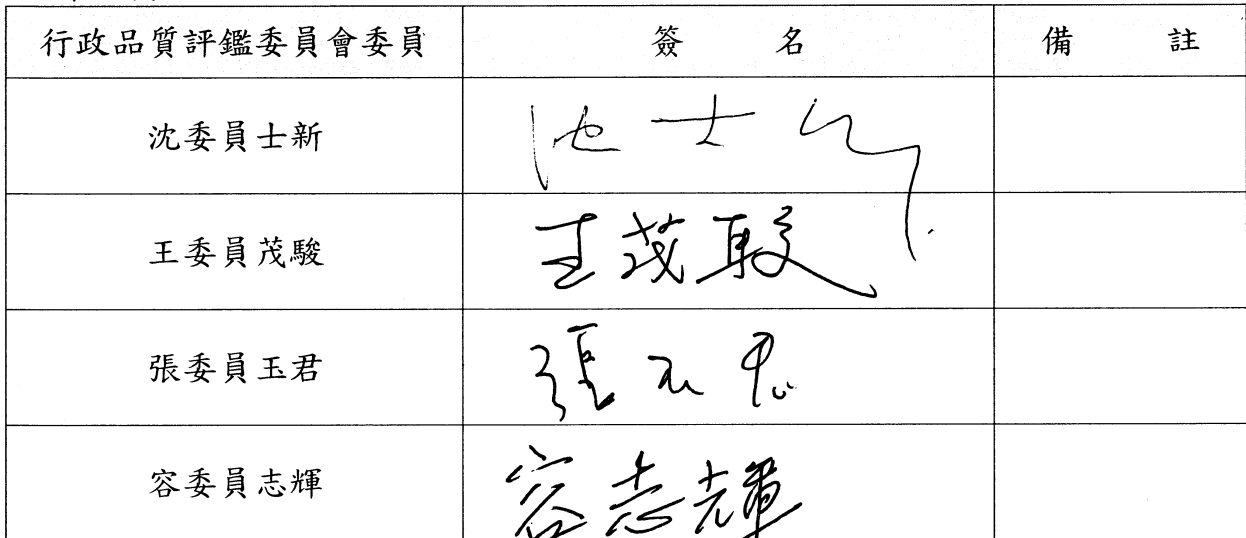 行政品質評鑑委員會委員 簽名 備註
沈委員士新
王委員茂駿 王茂駿
張委員玉君 張玉君
容委員志輝 容志輝